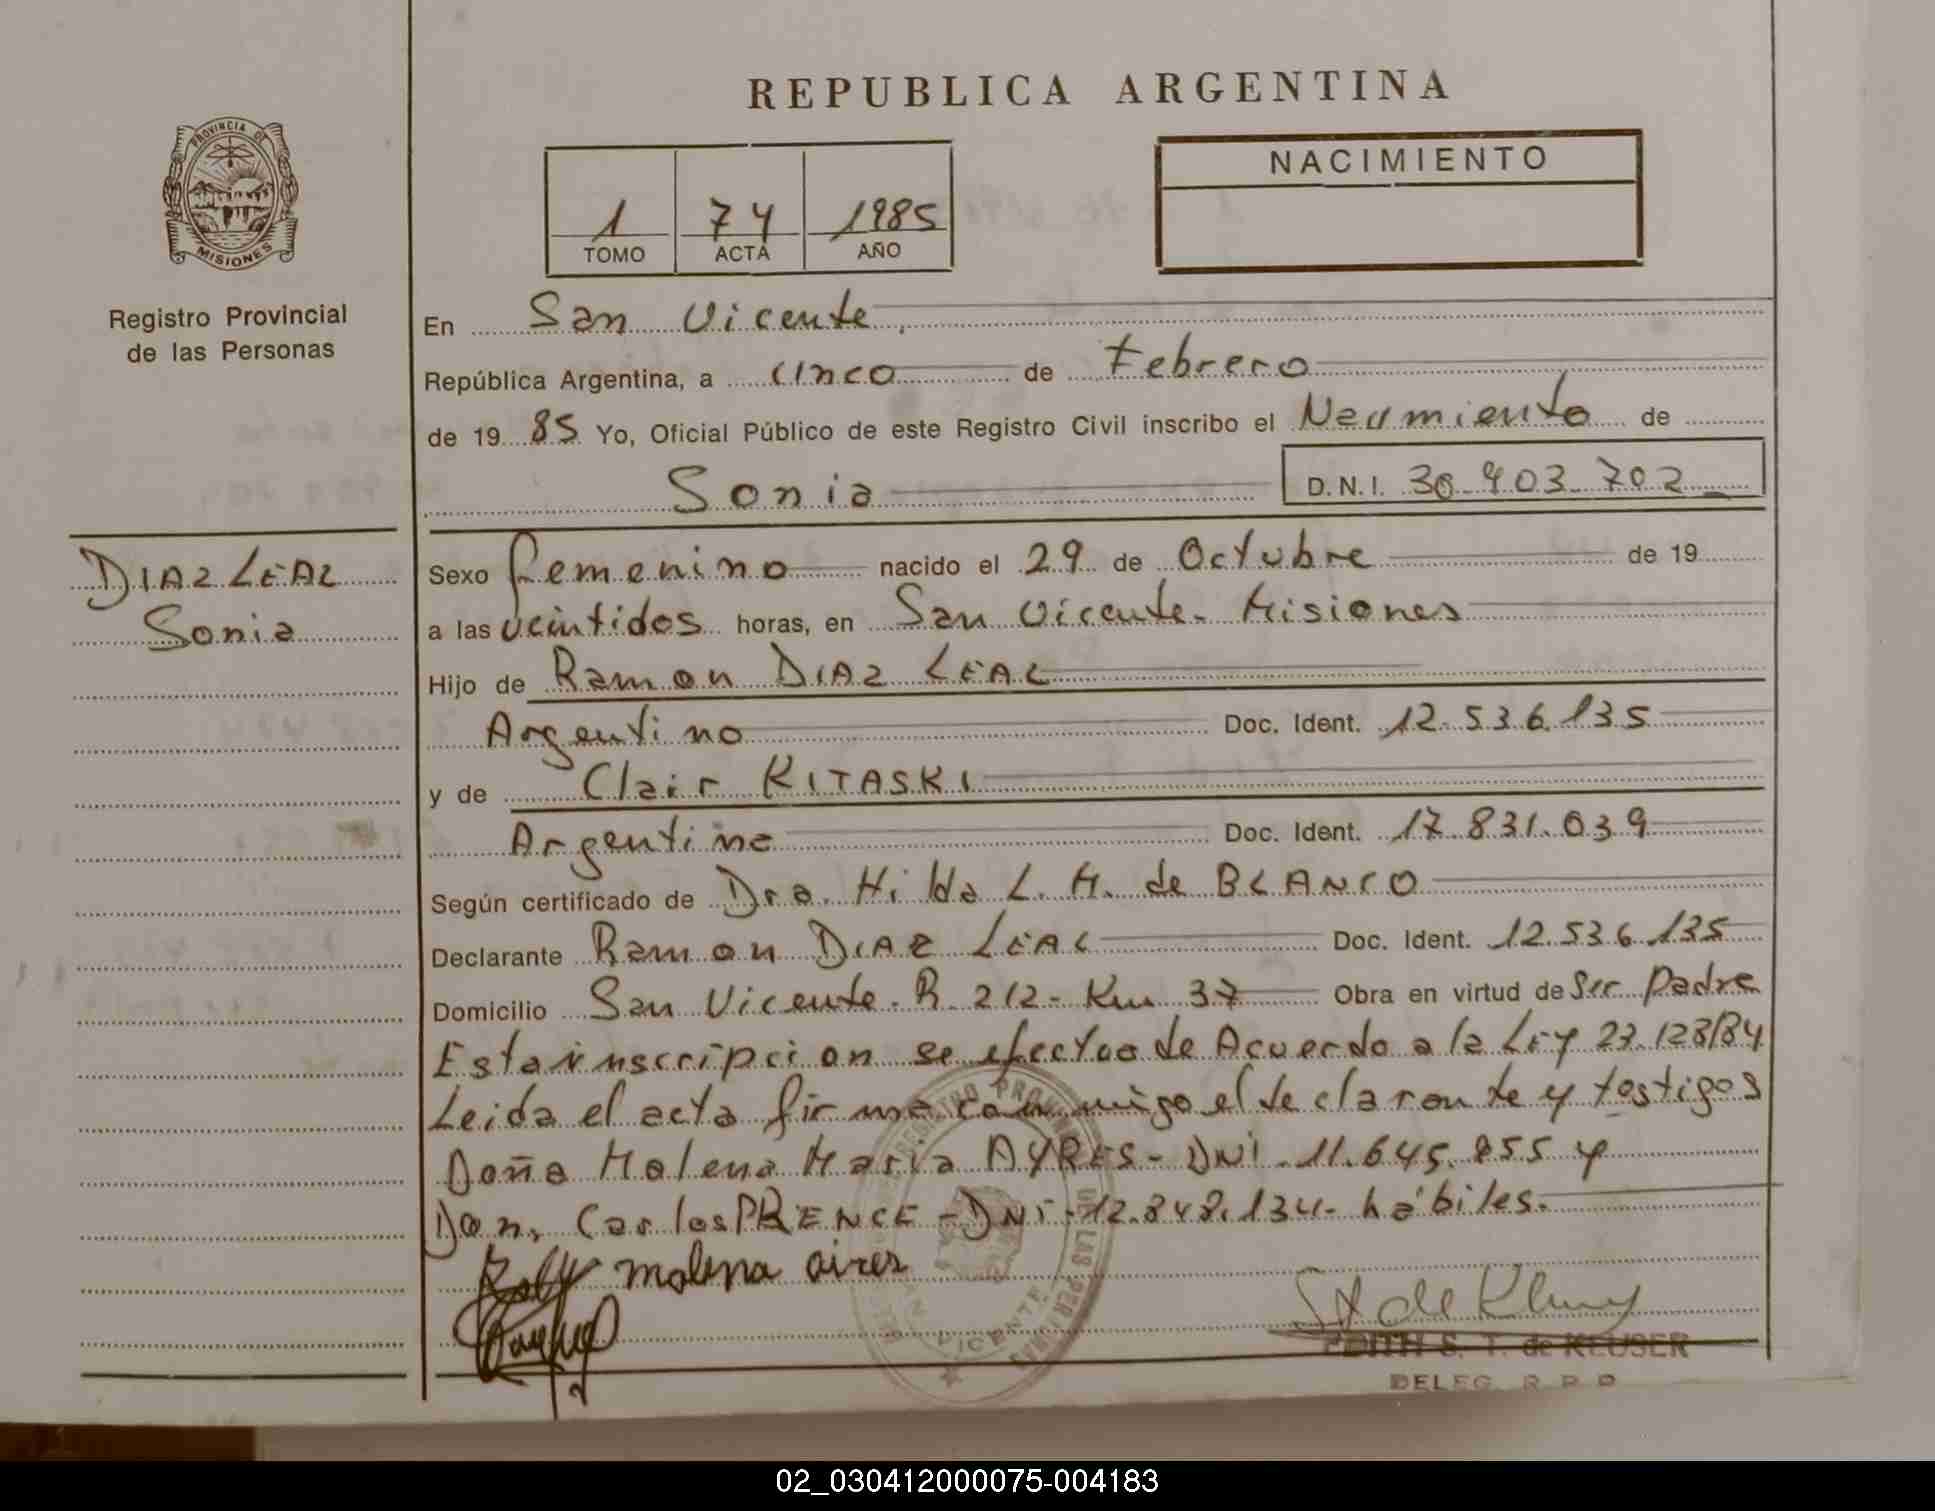 REPUBLICA ARGENTINA
PROVINCIA DE
MISIONES
Registro Provincial
de las Personas
1 74 1985
TOMO ACTA AÑO
NACIMIENTO
En San Vicente,
República Argentina, a cinco de Febrero
de 19 85 Yo, Oficial Público de este Registro Civil inscribo el Nacimiento de
Sonia D.N.I. 30.903.702
DIAZ LEAL
Sonia
Sexo femenino nacido el 29 de Octubre de 19
a las veintidos horas, en San Vicente - Misiones
Hijo de Ramon DIAZ LEAL
Argentino Doc. Ident. 12.536.135
y de Clair KITASKI
Argentina Doc. Ident. 17.831.039
Según certificado de Dra. Hilda L. M. de BLANCO
Declarante Ramon DIAZ LEAL Doc. Ident. 12.536.135
Domicilio San Vicente - R. 212 - Km 37 Obra en virtud de Ser Padre
Esta inscripcion se efectua de Acuerdo a la Ley 23.128/84
Leida el acta firma conmigo el declarante y testigos
Doña Malena Maria AYRES - DNI - 11.645.855 y
Don, Carlos PRENCE - DNI - 12.848.134 - hábiles.
malena aires
REGISTRO PROVINCIAL DE LAS PERSONAS
SAN VICENTE
EDITH S. T. de KEUSER
DELEG. R. P. P.
02_030412000075-004183